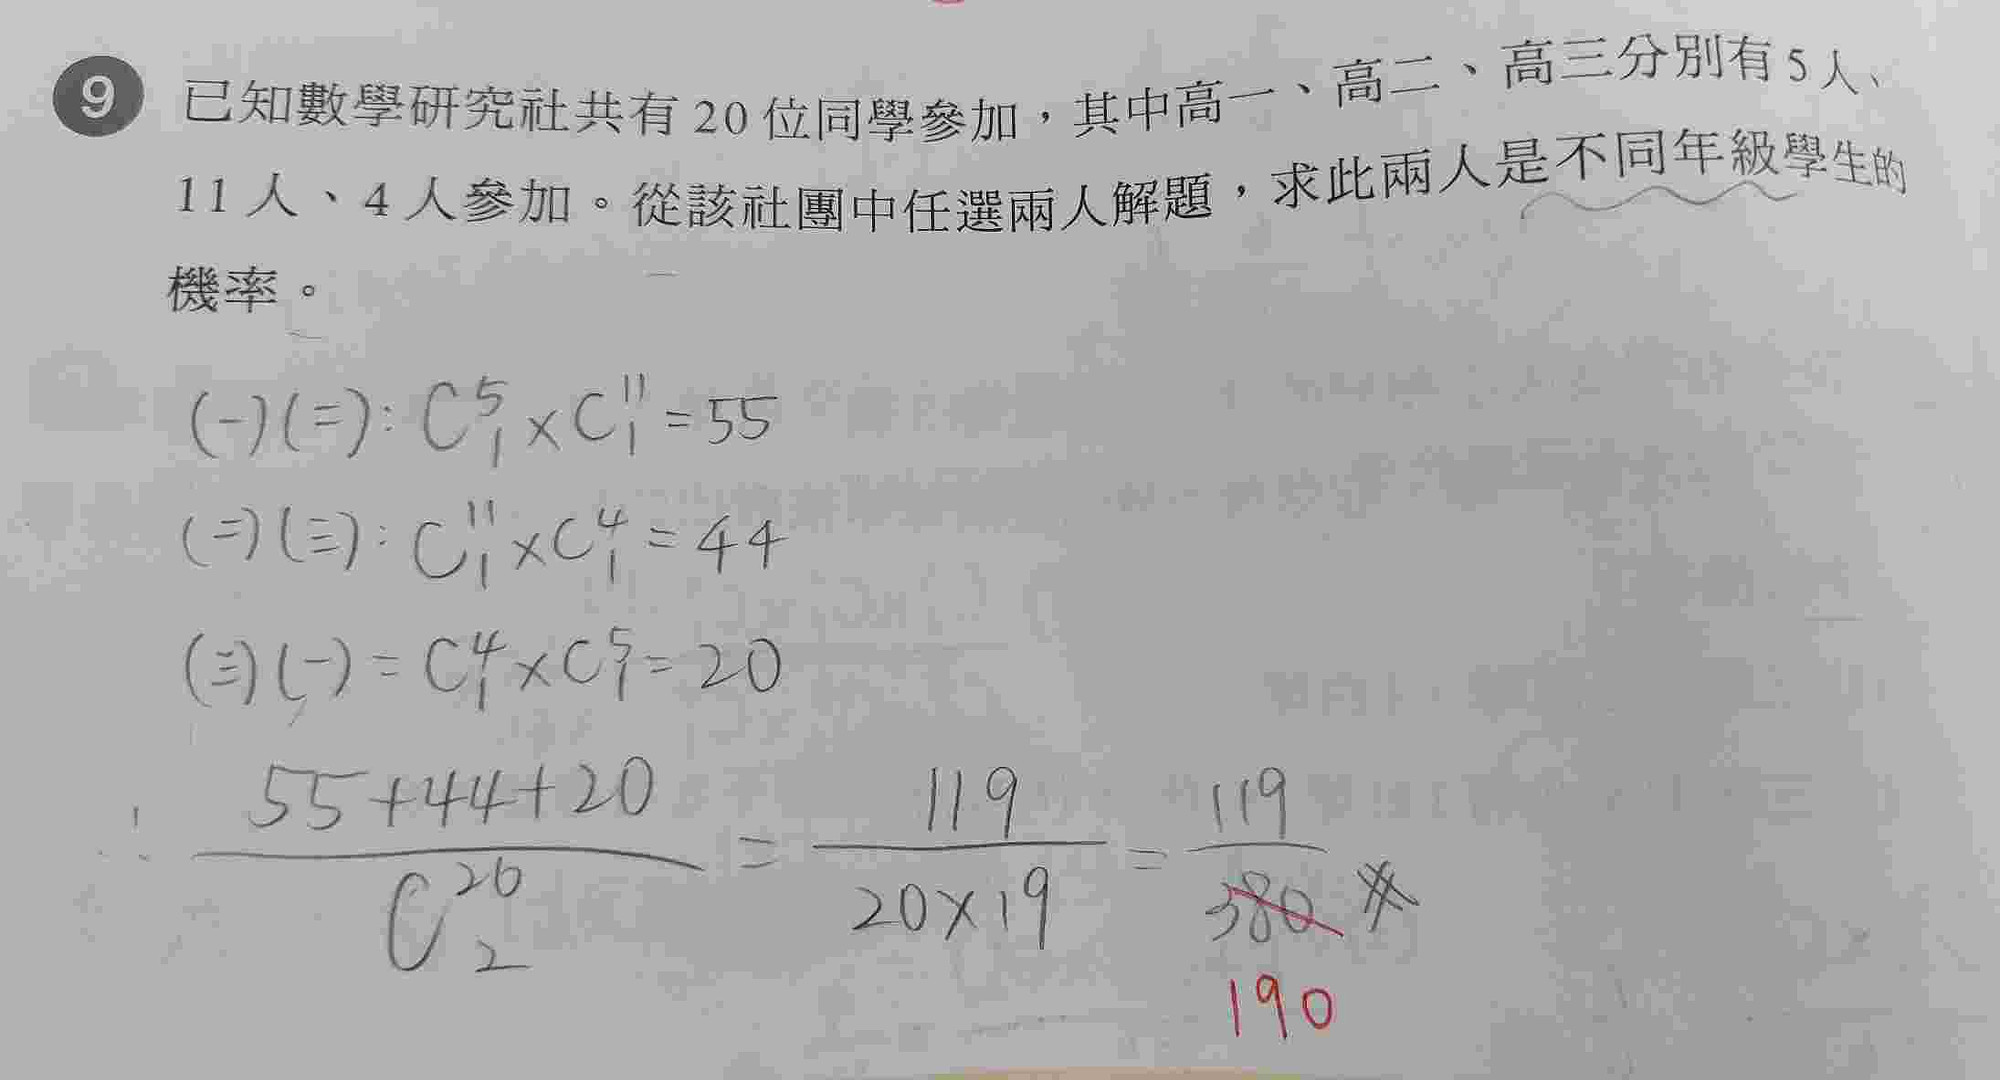 9 已知數學研究社共有20位同學參加，其中高一、高二、高三分別有5人、
11人、4人參加。從該社團中任選兩人解題，求此兩人是不同年級學生的
機率。
(一)(二): C⁵₁×C¹¹₁=55
(二)(三): C¹¹₁×C⁴₁=44
(三)(一)=C⁴₁×C⁵₁=20
∴ (55+44+20)/C²⁰₂ = 119/(20×19) = 119/380 ※
190